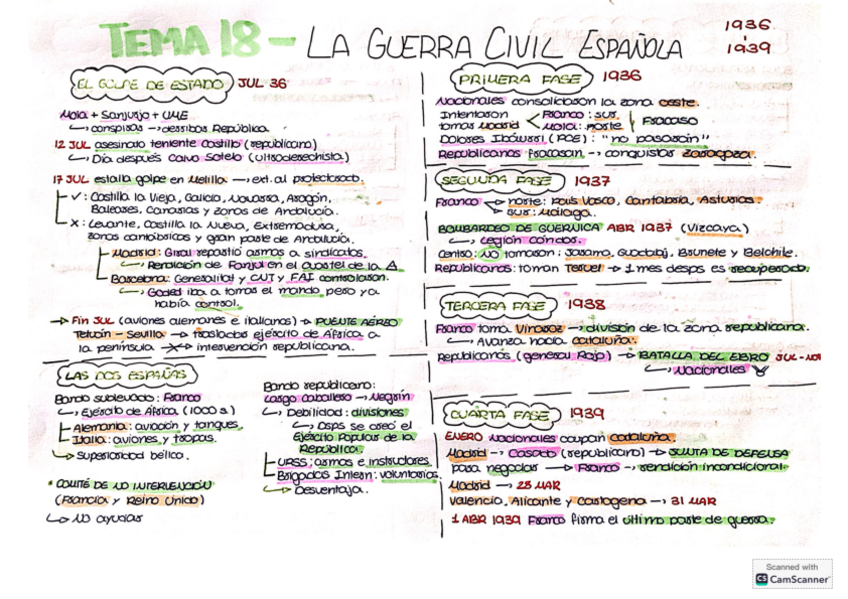 TEMA 18 - LA GUERRA CIVIL ESPAÑOLA
1936
1939
EL GOLPE DE ESTADO JUL 36
Mola + Sanjurjo + UME
↳ conspiras → derribar República
12 JUL asesinato teniente Castillo (republicano)
↳ Día después Calvo Sotelo (ultraderechista)
17 JUL estalla golpe en Melilla → ext. al protectorado.
✓: Castilla la Vieja, Galicia, Navarra, Aragón,
Baleares, Canarias y zonas de Andalucía.
X: Levante, Castilla la Nueva, Extremadura,
zonas cantábricas y gran parte de Andalucía.
Madrid: Giral repartió armas a sindicatos.
↳ Rendición de Fanjul en el cuartel de la △.
Barcelona: Generalitat y CNT y FAI controlaron.
↳ Goded iba a tomar el mando pero ya
había control.
→ Fin JUL (aviones alemanes e italianos) → PUENTE AÉREO
Tetuán - Sevilla → traslados ejército de África a
la península → intervención republicana.
LAS DOS ESPAÑAS
Bando sublevado: Franco
↳ Ejército de África, (1000 s)
Alemania: aviación y tanques.
Italia: aviones y tropas.
↳ Superioridad bélica.
• COMITÉ DE NO INTERVENCIÓN
(Francia y Reino Unido)
↳ NO ayudar
Bando republicano:
Largo Caballero → Negrín
↳ Debilidad: divisiones
↳ Dsps se creó el
Ejército Popular de la
República.
URSS: armas e instructores.
Brigadas Intern: voluntarios.
↳ Desventaja.
PRIMERA FASE 1936
Nacionales consolidaron la zona oeste.
Intentaron
tomar Madrid
Franco: sur.
Mola: norte
Fracaso
Dolores Ibárruri (PCE): "no pasarán"
Republicanos fracasan → conquistar Zaragoza.
SEGUNDA FASE 1937
Franco
norte: País Vasco, Cantabria, Asturias.
sur: Málaga.
BOMBARDEO DE GUERNICA ABR 1937 (Vizcaya)
↳ Legión Cóndor.
Centro: NO tomaron: Jarama, Guadalaj, Brunete y Belchite.
Republicanos: toman Teruel → 1 mes desps es recuperado.
TERCERA FASE 1938
Franco toma Vinaroz → división de la zona republicana.
↳ Avanza hacia Cataluña.
Republicanos (general Rojo) → BATALLA DEL EBRO JUL-NOV
↳ Nacionales
CUARTA FASE 1939
ENERO Nacionales ocupan Cataluña.
Madrid → Casado (republicano) → JUNTA DE DEFENSA
para negociar → Franco → rendición incondicional.
Madrid → 28 MAR
Valencia, Alicante y Cartagena → 31 MAR
1 ABR 1939 Franco firma el último parte de guerra.
Scanned with
CS CamScanner